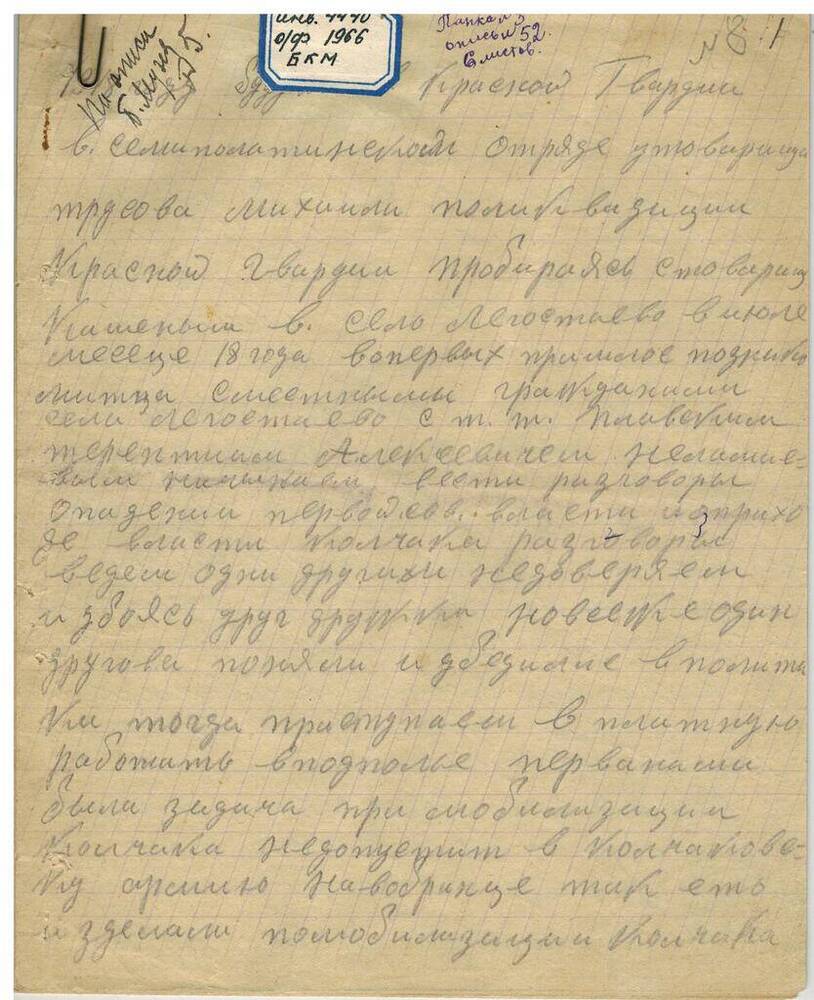 инв. 4440
о/ф 1966
БКМ
Папка №3
описи 52.
6 листов.
№ 8 1
По описи
Красной Гвардии
в. семиполатинском отряде утоварища
трусова михаили поликвидиции
Красной гвардии пробираясь стоварищ
в. село Легостаево виюле
месеце 18 года вопервых пришлос познако
митца сместными гражданами
села легостаево с т. т. плавским
терентием Алексеевичем
вести разговоры
опадении первойсов. власти иоприхо
де власти колчака разговоры
ведем одни другими недоверяем
и збоясь друг дружки новсеже один
другова поняли и убедилис вполити
ки тогда приступаем в плотную
работать вподполье перванами
была задача при мобилизации
Колчака недопустит в колчаковс-
ку армию навобранце так еть
и зделали помобилизации Колчака